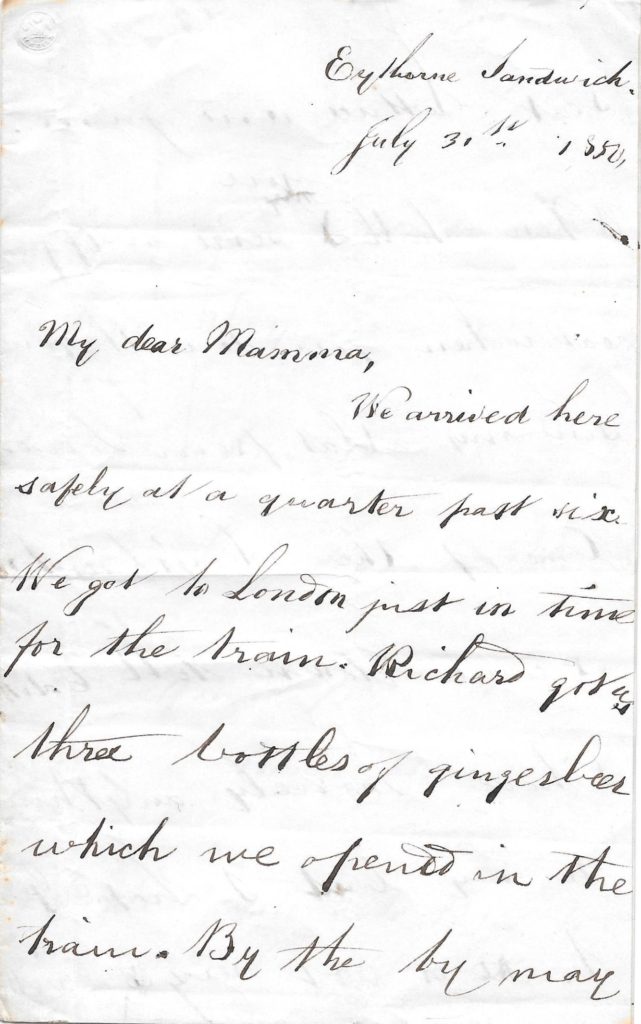 Eythorne Sandwich.
July 31st 1850,
My dear Mamma,
We arrived here
safely at a quarter past six.
We got to London just in time
for the train. Richard got us
three bottles of gingerbeer
which we opened in the
train. By the by may